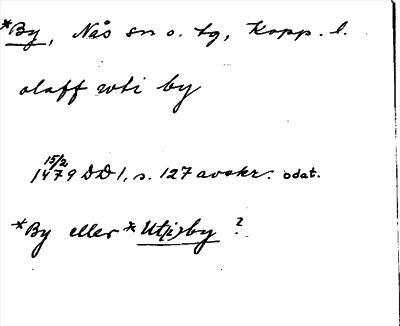 *By, Nås sn o. tg, Kopp. l.
olaff wti by
15/2
1479 DD 1, s. 127 avskr. odat.
*By eller *Ut(i)by ?